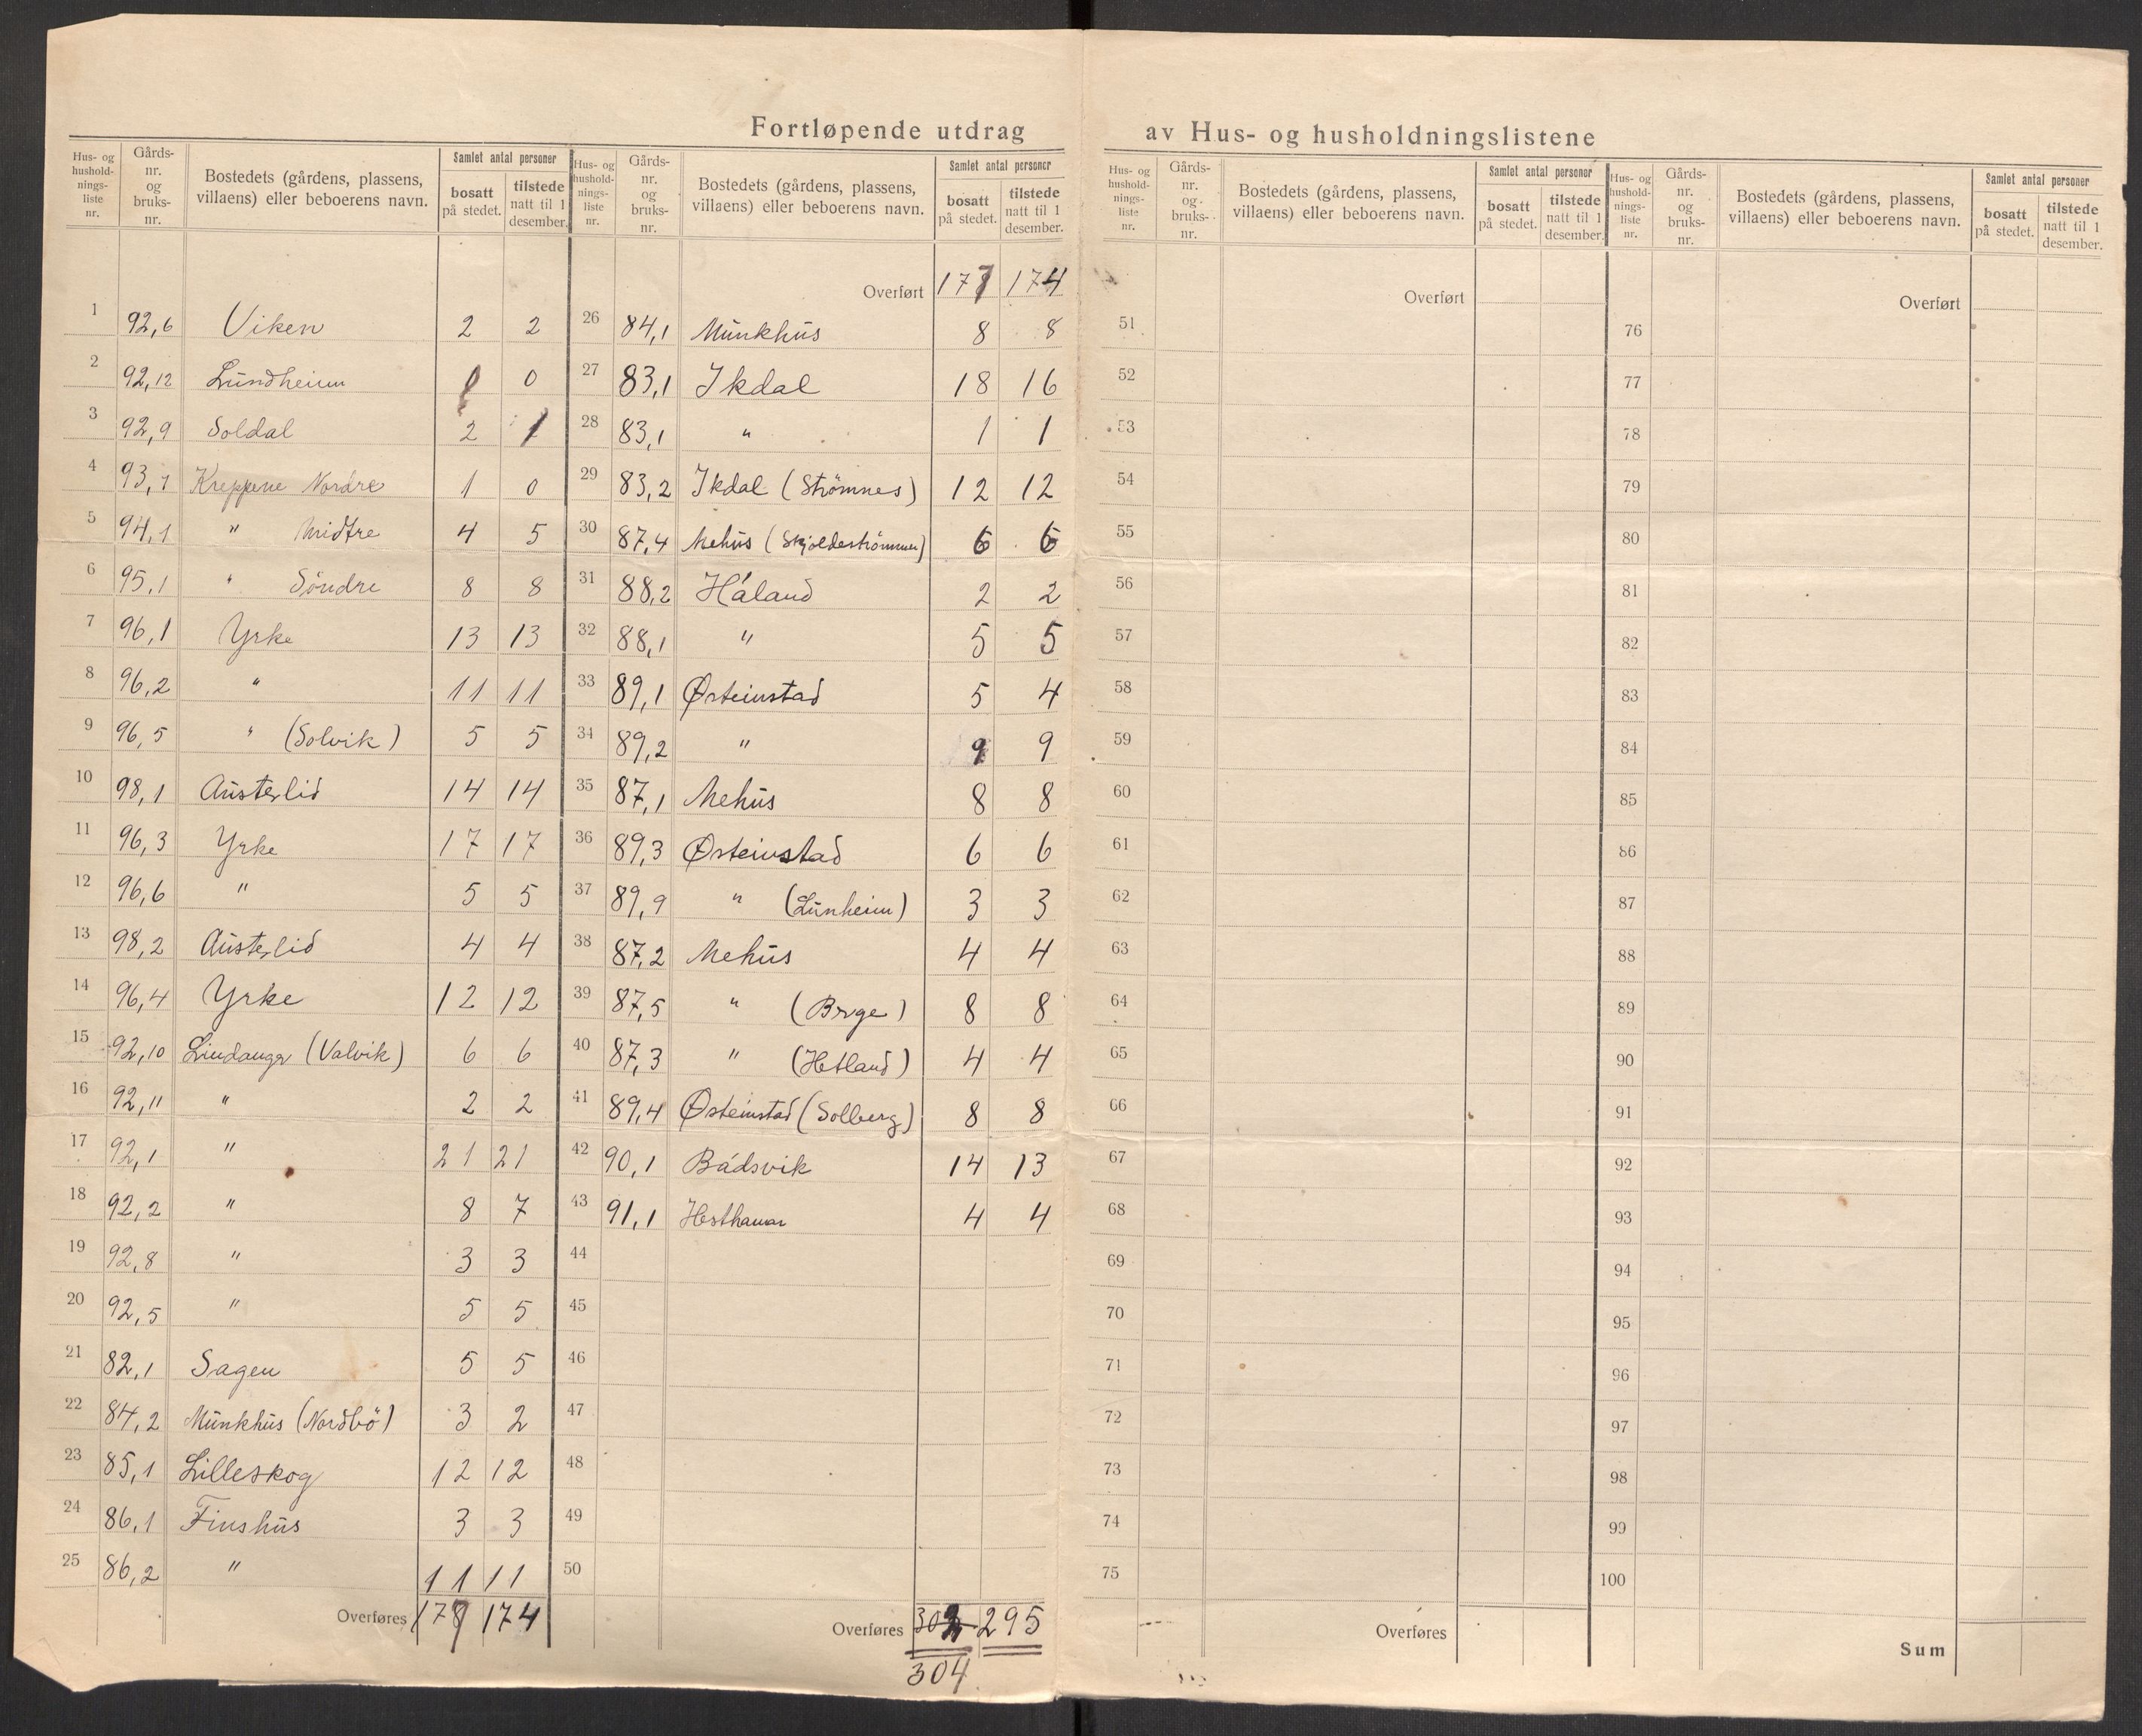 Fortløpende utdrag av Hus- og husholdningslistene
Hus- og hushold-nings-liste nr. Gårds-nr. og bruks-nr. Bostedets (gårdens, plassens, villaens) eller beboerens navn. Samlet antal personer bosatt på stedet. tilstede natt til 1 desember.
1 92,6 Viken 2 2
2 92,12 Lundheim 0 0
3 92,9 Soldal 2 1
4 93,1 Kreppene Nordre 1 0
5 94,1 " Midtre 4 5
6 95,1 " Söndre 8 8
7 96,1 Yrke 13 13
8 96,2 " 11 11
9 96,5 " (Solvik) 5 5
10 98,1 Austerlid 14 14
11 96,3 Yrke 17 17
12 96,6 " 5 5
13 98,2 Austerlid 4 4
14 96,4 Yrke 12 12
15 92,10 Lindanger (Valvik) 6 6
16 92,11 " 2 2
17 92,1 " 21 21
18 92,2 " 8 7
19 92,8 " 3 3
20 92,5 " 5 5
21 82,1 Sagen 5 5
22 84,2 Munkhus (Nordbö) 3 2
23 85,1 Lilleskog 12 12
24 86,1 Finshus 3 3
25 86,2 " 11 11
Overføres 174
Hus- og hushold-nings-liste nr. Gårds-nr. og bruks-nr. Bostedets (gårdens, plassens, villaens) eller beboerens navn. Samlet antal personer bosatt på stedet. tilstede natt til 1 desember.
Overført 177 174
26 84,1 Munkhus 8 8
27 83,1 Ikdal 18 16
28 83,1 " 1 1
29 83,2 Ikdal (Strømnes) 12 12
30 87,4 Mehus 6 6
31 88,2 Håland 2 2
32 88,1 " 5 5
33 89,1 Østeinstad 5 4
34 89,2 " 9 9
35 87,1 Mehus 8 8
36 89,3 Østeinstad 6 6
37 89,9 " (Lunheim) 3 3
38 87,2 Mehus 4 4
39 87,5 " 8 8
40 87,3 " (Hetland) 4 4
41 89,4 Østeinstad (Solberg) 8 8
42 90,1 Bådsvik 14 13
43 91,1 4 4
44
45
46
47
48
49
50
Overføres 295
304
Hus- og hushold-nings-liste nr. Gårds-nr. og bruks-nr. Bostedets (gårdens, plassens, villaens) eller beboerens navn. Samlet antal personer bosatt på stedet. tilstede natt til 1 desember.
Overført
51
52
53
54
55
56
57
58
59
60
61
62
63
64
65
66
67
68
69
70
71
72
73
74
75
Overføres
Hus- og hushold-nings-liste nr. Gårds-nr. og bruks-nr. Bostedets (gårdens, plassens, villaens) eller beboerens navn. Samlet antal personer bosatt på stedet. tilstede natt til 1 desember.
Overført
76
77
78
79
80
81
82
83
84
85
86
87
88
89
90
91
92
93
94
95
96
97
98
99
100
Sum